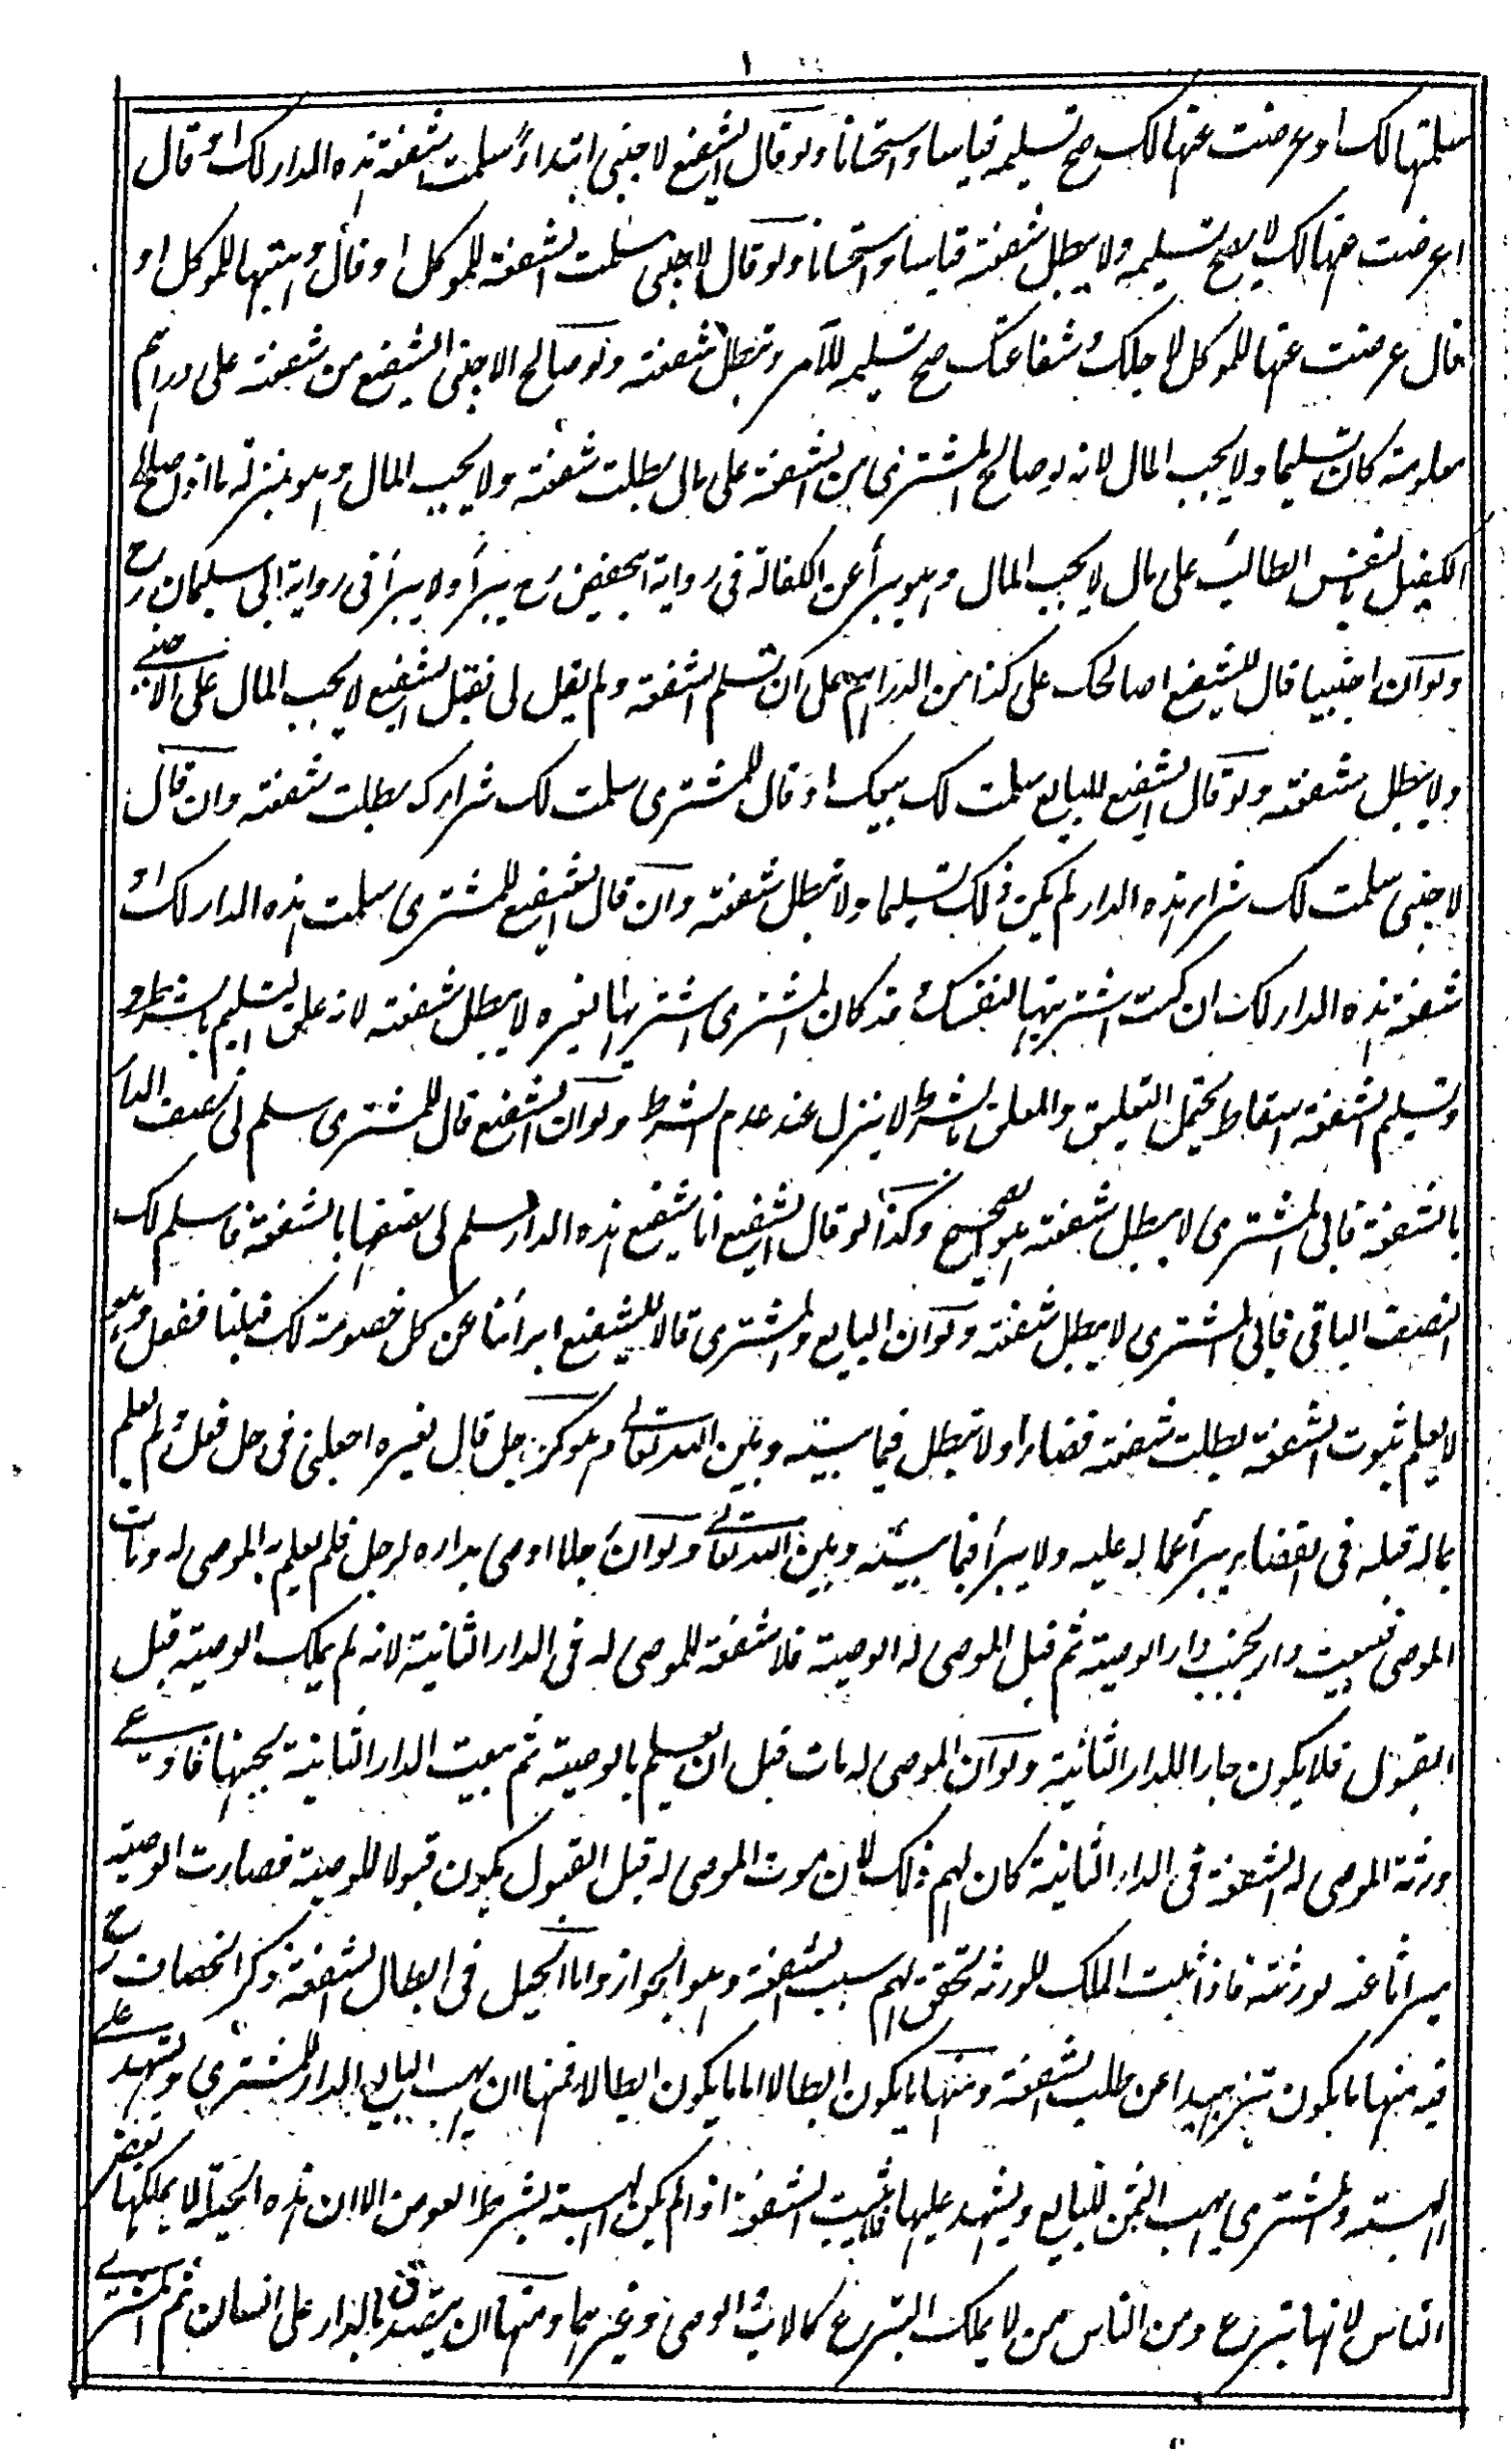 سلمتها لك او عرضت عنها لك صح تسليمه قياسا واستحسانا ولو قال الشفيع لاجنبي ابتداءً سلمت شفعة هذه الدار لك او قال
اعرضت عنها لك لا يصح تسليمه ولا يبطل شفعته قياسا واستحسانا ولو قال لاجنبي سلمت الشفعة للموكل او قال وهبتها للموكل او
قال عرضت عنها للموكل لاجلك وشفاعتك صح تسليمه للآمر وتبطل شفعته ولو صالح الاجنبي الشفيع من شفعته على دراهم
معلومة كان تسليما ولا يجب المال لانه لو صالح المشتري من الشفعة على مال بطلت شفعته ولا يجب المال وهو بمنزلة ما اذا صالح
الكفيل بالنفس الطالب على مال لا يجب المال وهو يبرأ عن الكفالة في رواية ابي حفص رح يبرأ ولا يبرأ في رواية ابي سليمان رح
ولو ان اجنبيا قال للشفيع اصالحك على كذا من الدراهم على ان تسلم الشفعة ولم يقل لي فقبل الشفيع لا يجب المال على الاجنبي
ولا يبطل شفعته ولو قال الشفيع للبايع سلمت لك بيعك او قال للمشتري سلمت لك شراءك بطلت شفعته وان قال
لاجنبي سلمت لك شراء هذه الدار لم يكن ذلك تسليما ولا تبطل شفعته وان قال الشفيع للمشتري سلمت هذه الدار لك او
شفعة هذه الدار لك ان كنت اشتريتها لنفسك وقد كان المشتري اشتريها لغيره لا يبطل شفعته لانه علق التسليم بالشرط و
وتسليم الشفعة اسقاط يحتمل التعليق والمعلق بالشرط لا ينزل عند عدم الشرط ولو ان الشفيع قال للمشتري سلم لي نصف الدار
بالشفعة فابى المشتري لا يبطل شفعته هو الصحيح وكذا لو قال الشفيع انا شفيع هذه الدار سلم لي نصفها بالشفعة فاسلم لك
النصف الباقي فابى المشتري لا يبطل شفعته ولو ان البايع والمشتري قالا للشفيع ابرأتنا عن كل خصومة لك قبلنا ففعل وهو
لا يعلم ثبوت الشفعة بطلت شفعته قضاء ولا تبطل فيما بينه وبين الله تعالى وهو كرجل قال لغيره اجعلني في حل فعل ولم يعلم
بما له قبله في القضاء يبرأ عما له عليه ولا يبرأ فيما بينه وبين الله تعالى ولو ان رجلا اوصى بداره لرجل فلم يعلم به الموصى له ومات
الموصي فبيعت دار بجنب دار الوصية ثم قبل الموصى له الوصية فلا شفعة للموصى له في الدار الثانية لانه لم يملك الوصية قبل
القبول فلا يكون جارا للدار الثانية ولو ان الموصى له مات قبل ان يعلم بالوصية ثم بيعت الدار الثانية بجنبها فادعى
ورثة الموصى له الشفعة في الدار الثانية كان لهم ذلك لان موت الموصى له قبل القبول يكون قبولا للوصية فصارت الوصية
ميراثا عنه لورثته فاذا ثبت الملك للورثة تحقق لهم سبب الشفعة وهو الجوار واما الحيل في ابطال الشفعة ذكر الخصاف رح
فيه منها ما يكون تزهيدا عن طلب الشفعة ومنها ما يكون ابطالا اما ما يكون ابطالا فمنها ان يهب البايع الدار للمشتري ويشهد على
الهبة والمشتري يهب الثمن للبايع ويشهد عليها فلا يثبت الشفعة اذا لم يكن الهبة بشرط العوض الا ان هذه الحيلة لا يملكها بعض
الناس لانها تبرع ومن الناس من لا يملك التبرع كالاب والوصي وغيرهما ومنها ان يتصدق بالدار على انسان ثم المشتري